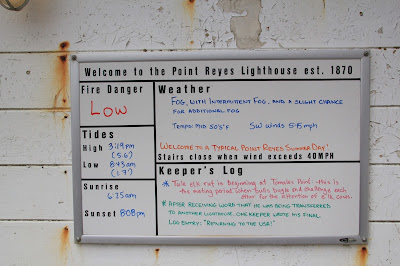 Welcome to the Point Reyes Lighthouse est. 1870
Fire Danger
Low
Tides
High 3:19pm
(5.6)
Low 8:43am
(1.7)
Sunrise
6:25am
Sunset 8:08pm
Weather
FOG, WITH INTERMITTENT FOG, AND A SLIGHT CHANCE
FOR ADDITIONAL FOG
TEMPS: MID 50's F SW WINDS 5-15mph
"WELCOME TO A TYPICAL POINT REYES SUMMER DAY"
Stairs close when wind exceeds 40MPH
Keeper's Log
* Tule elk rut is beginning at Tomales Point - this is
the mating period when bulls bugle and challenge each
other for the attention of elk cows.
* AFTER RECEIVING WORD THAT HE WAS BEING TRANSFERRED
TO ANOTHER LIGHTHOUSE, ONE KEEPER WROTE AS HIS FINAL
LOG ENTRY: "RETURNING TO THE USA!"